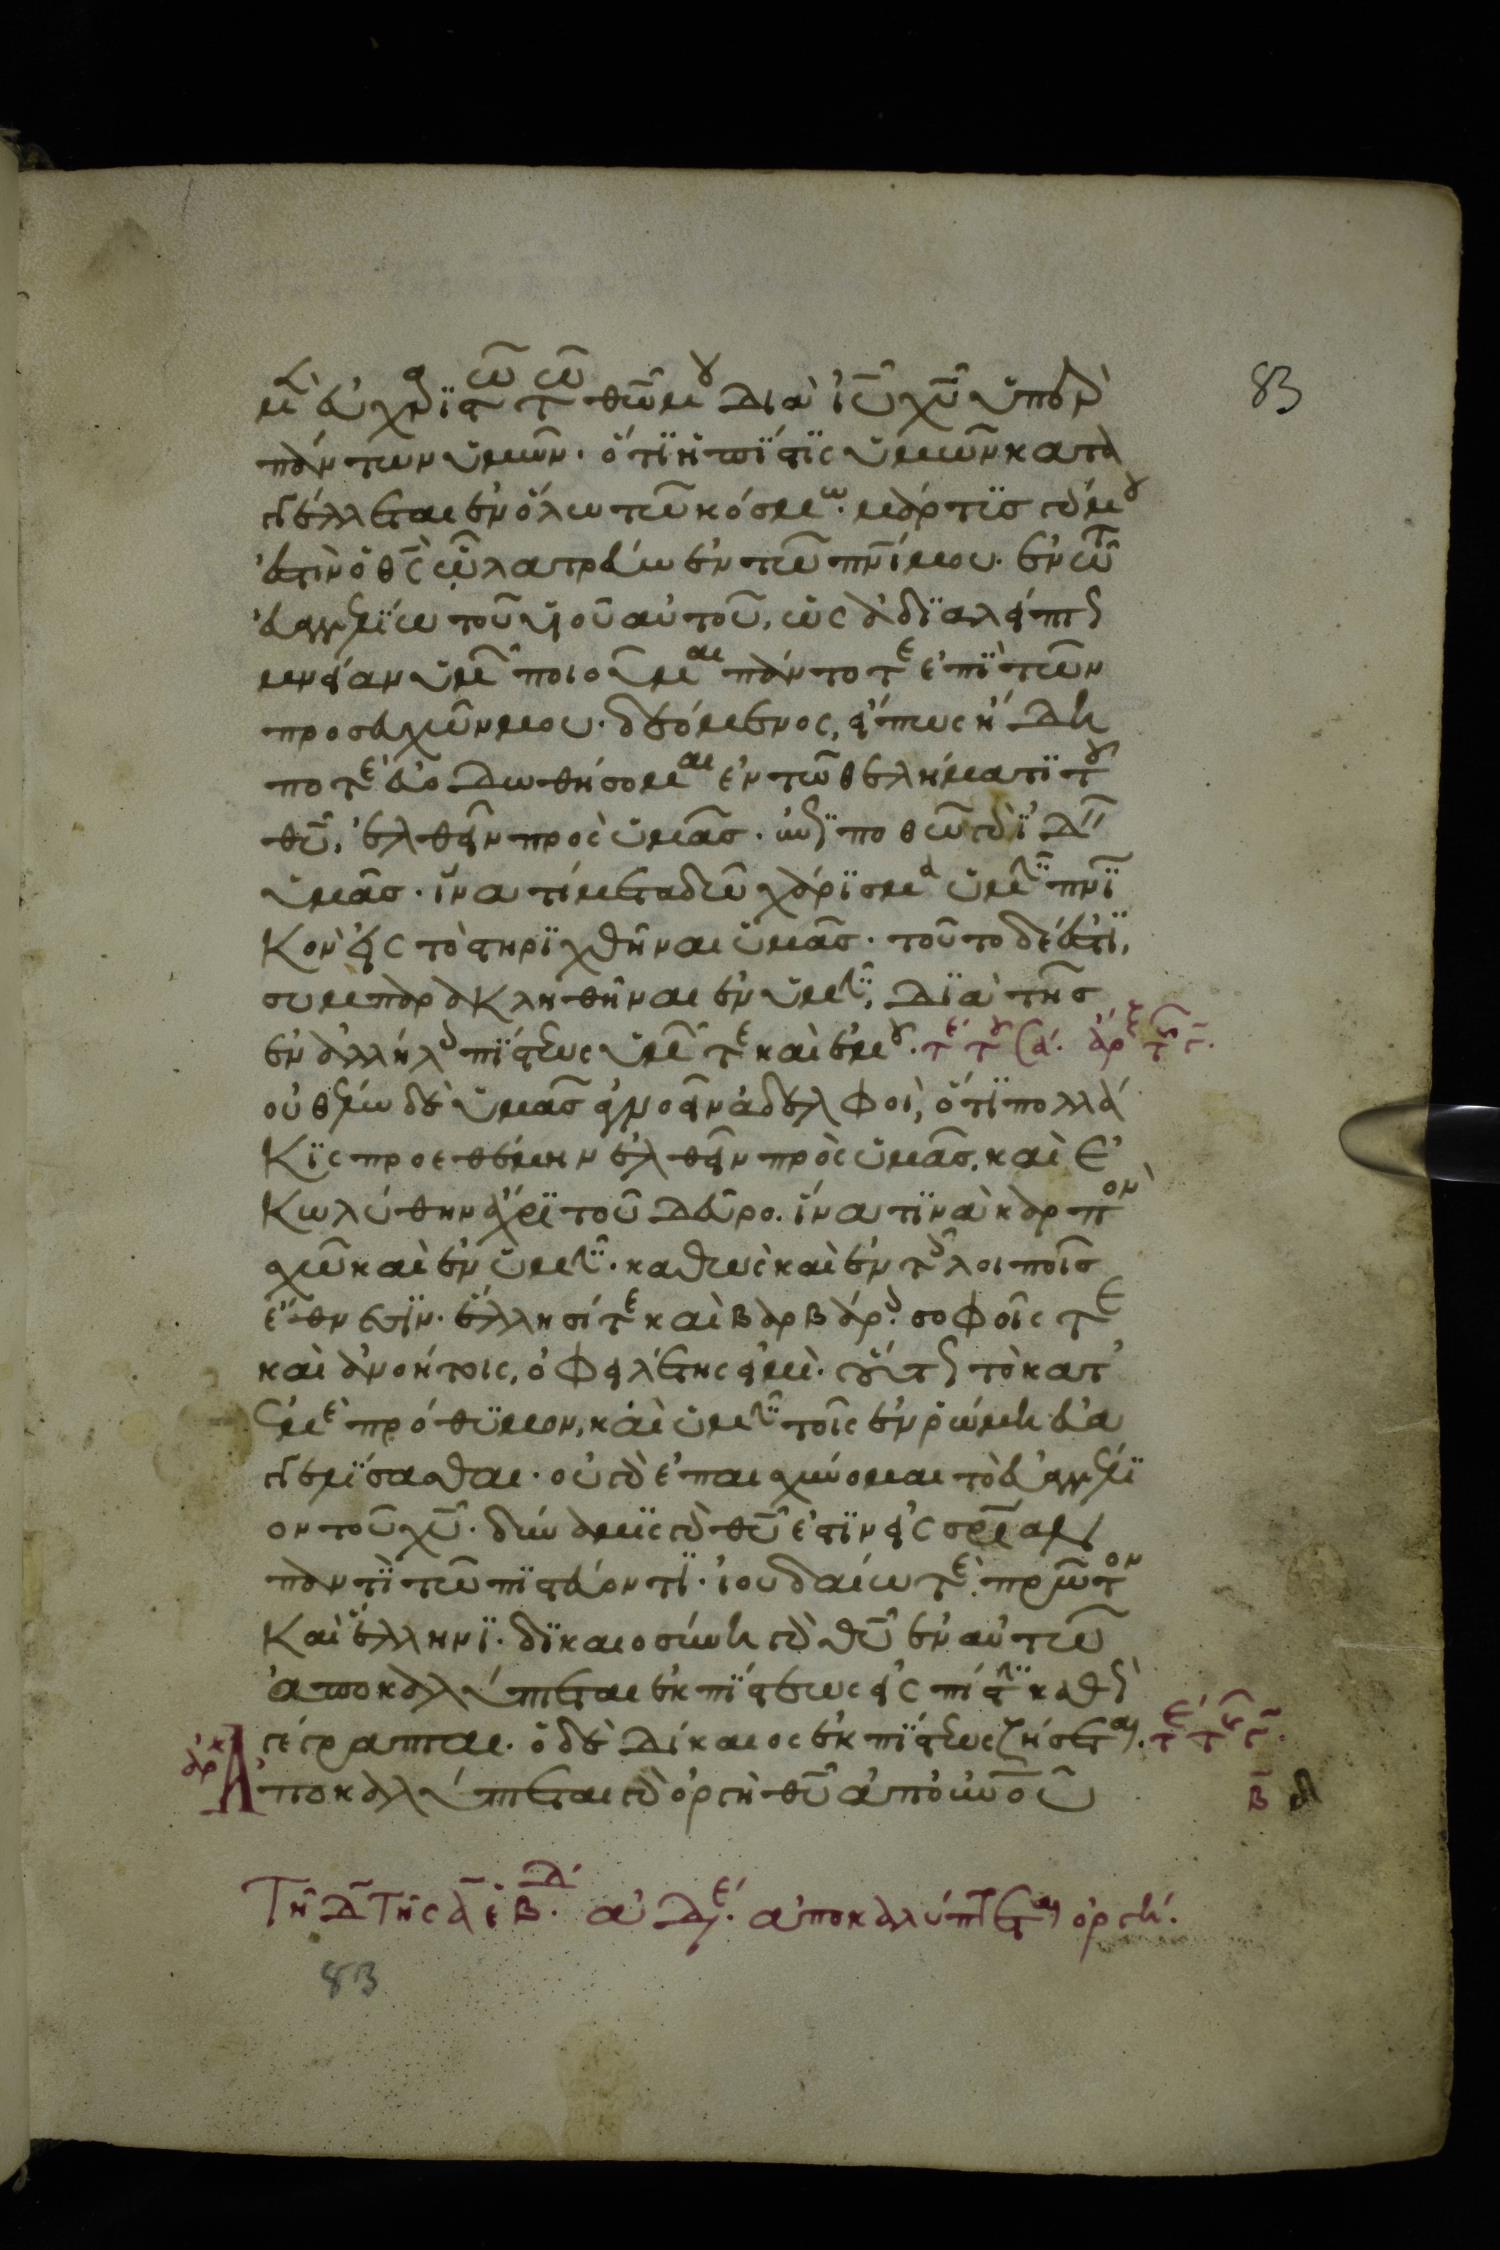 μὲν εὐχαριστῶ τῶ θῶ μου διὰ ἰῦ χῦ ὑπὲρ
83
πάντων ὑμῶν· ὅτι ἡ πίστις ὑμῶν κατα
γγέλλεται ἐν ὅλω τῶ κόσμω· μάρτυς γάρ μου
ἐστὶν ὁ θς ὧ λατρεύω ἐν τῶ πνί μου· ἐν τῶ
εὐαγγελίω τοῦ υἱοῦ αὐτοῦ, ὡς ἀδιαλείπτως
μνείαν ὑμῶν ποιοῦμαι πάντοτε ἐπὶ τῶν
προσευχῶν μου· δεόμενος, εἴπως ἤδη
ποτὲ εὐοδωθήσομαι ἐν τῶ θελήματι τοῦ
θῦ, ἐλθεῖν πρὸς ὑμᾶς· ἐπιποθῶ γὰρ ἰδεῖν
ὑμᾶς· ἵνα τι μεταδῶ χάρισμα ὑμῖν πνι
κὸν εἰς τὸ στηριχθῆναι ὑμᾶς· τοῦτο δέ ἐστι,
συμπαρακληθῆναι ἐν ὑμῖν, διὰ τῆς
ἐν ἀλλήλοις πίστεως ὑμῶν τε καὶ ἐμοῦ·
οὐ θέλω δὲ ὑμᾶς ἀγνοεῖν ἀδελφοὶ, ὅτι πολλά
κις προεθέμην ἐλθεῖν πρὸς ὑμᾶς, καὶ ἐ
κωλύθην ἄχρι τοῦ δεῦρο· ἵνα τινὰ καρπὸν
σχῶ καὶ ἐν ὑμῖν· καθὼς καὶ ἐν τοῖς λοιποῖς
ἔθνεσιν· ἕλλησί τε καὶ βαρβάροις· σοφοῖς τε
καὶ ἀνοήτοις, ὀφειλέτης εἰμὶ· οὕτως τὸ κατ'
ἐμὲ πρόθυμον, καὶ ὑμῖν τοῖς ἐν ῥώμη εὐα
γγελίσασθαι· οὐ γὰρ ἐπαισχύνομαι τὸ εὐαγγέλι
ον τοῦ χῦ· δύναμις γὰρ θῦ ἐστιν εἰς σρίαν
παντὶ τῶ πιστεύοντι· ἰουδαίω τε πρῶτον
καὶ ἕλληνι· δικαιοσύνη γὰρ θῦ ἐν αὐτῶ
ἀποκαλύπτεται ἐκ πίστεως εἰς πίστιν καθὼς
γέγραπται· ὁ δὲ δίκαιος ἐκ πίστεως ζήσεται·
Ἀποκαλύπτεται γὰρ ὀργὴ θῦ ἀπ' οὐνοῦ
Β
Τῆ Δ τῆς ἀποκαλύπτεται ὀργή·
83